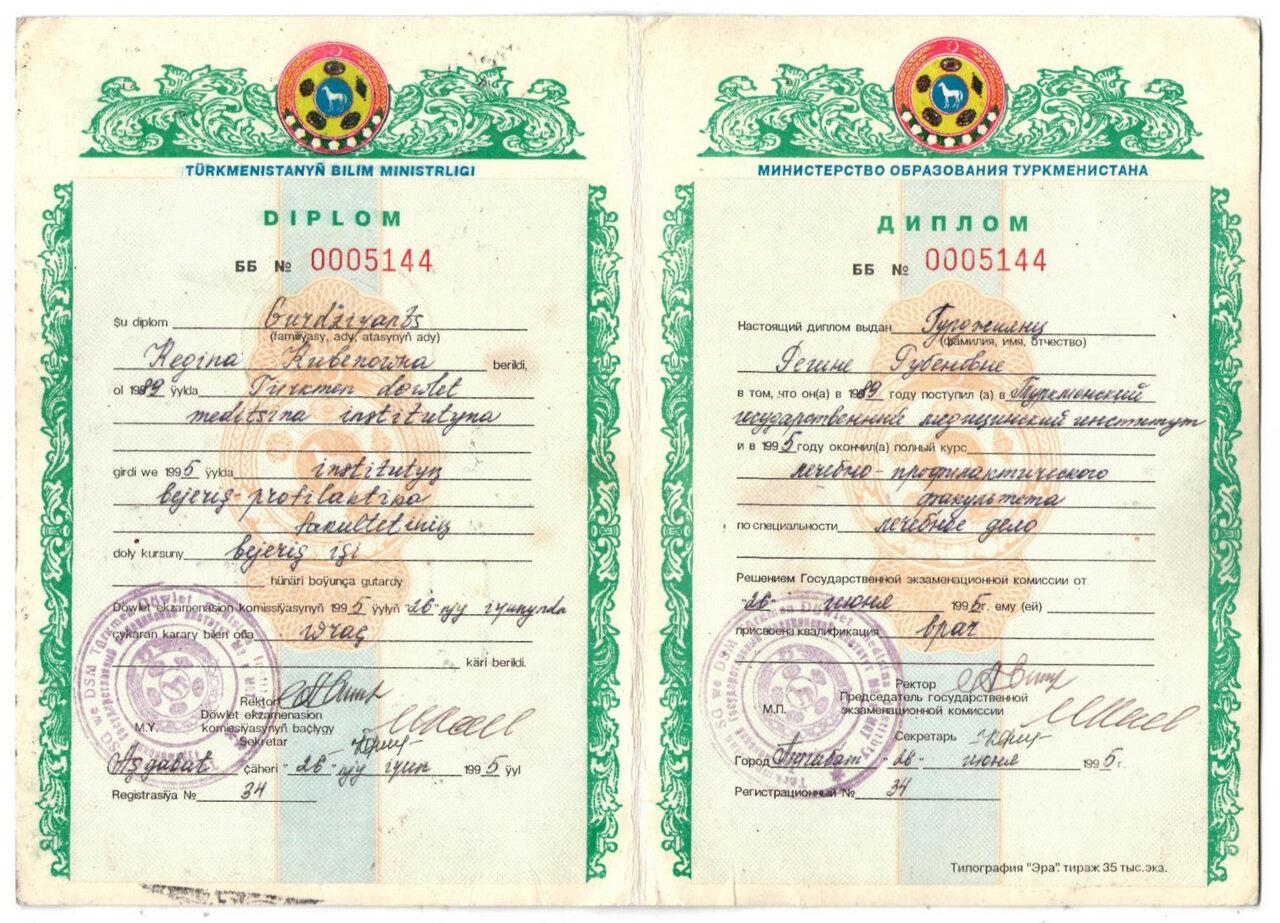 TÜRKMENISTANYŇ BILIM MINISTRLIGI
DIPLOM
ББ № 0005144
Şu diplom Gurdžiyants
(familiýasy, ady, atasynyň ady)
Regina Rubenowna berildi,
ol 1989 ýylda Türkmen döwlet
meditsina institutyna
girdi we 1995 ýylda institutyň
bejeriş-profilaktika
fakultetiniň
doly kursuny bejeriş işi
hünäri boýunça gutardy
Döwlet ekzamenasion komissiýasynyň 1995 ýylyň "26" njy iýunynda
çykaran karary bilen oňa wraç
käri berildi.
Rektor
Döwlet ekzamenasion
M.Y. komissiýasynyň başlygy
Sekretar
Aşgabat şäheri "28" njy iýun 1995 ýyl
Registrasiýa № 34
МИНИСТЕРСТВО ОБРАЗОВАНИЯ ТУРКМЕНИСТАНА
ДИПЛОМ
ББ № 0005144
Настоящий диплом выдан Гурджиянц
(фамилия, имя, отчество)
Регине Рубеновне
в том, что он(а) в 1989 году поступил (а) в Туркменский
государственный медицинский институт
и в 1995 году окончил(а) полный курс
лечебно-профилактического
факультета
по специальности лечебное дело
Решением Государственной экзаменационной комиссии от
"26" июня 1995г. ему (ей)
присвоена квалификация врач
Ректор
Председатель государственной
М.П. экзаменационной комиссии
Секретарь
Город Ашгабат "28" июня 1995г.
Регистрационный № 34
Типография "Эра". тираж 35 тыс.экз.